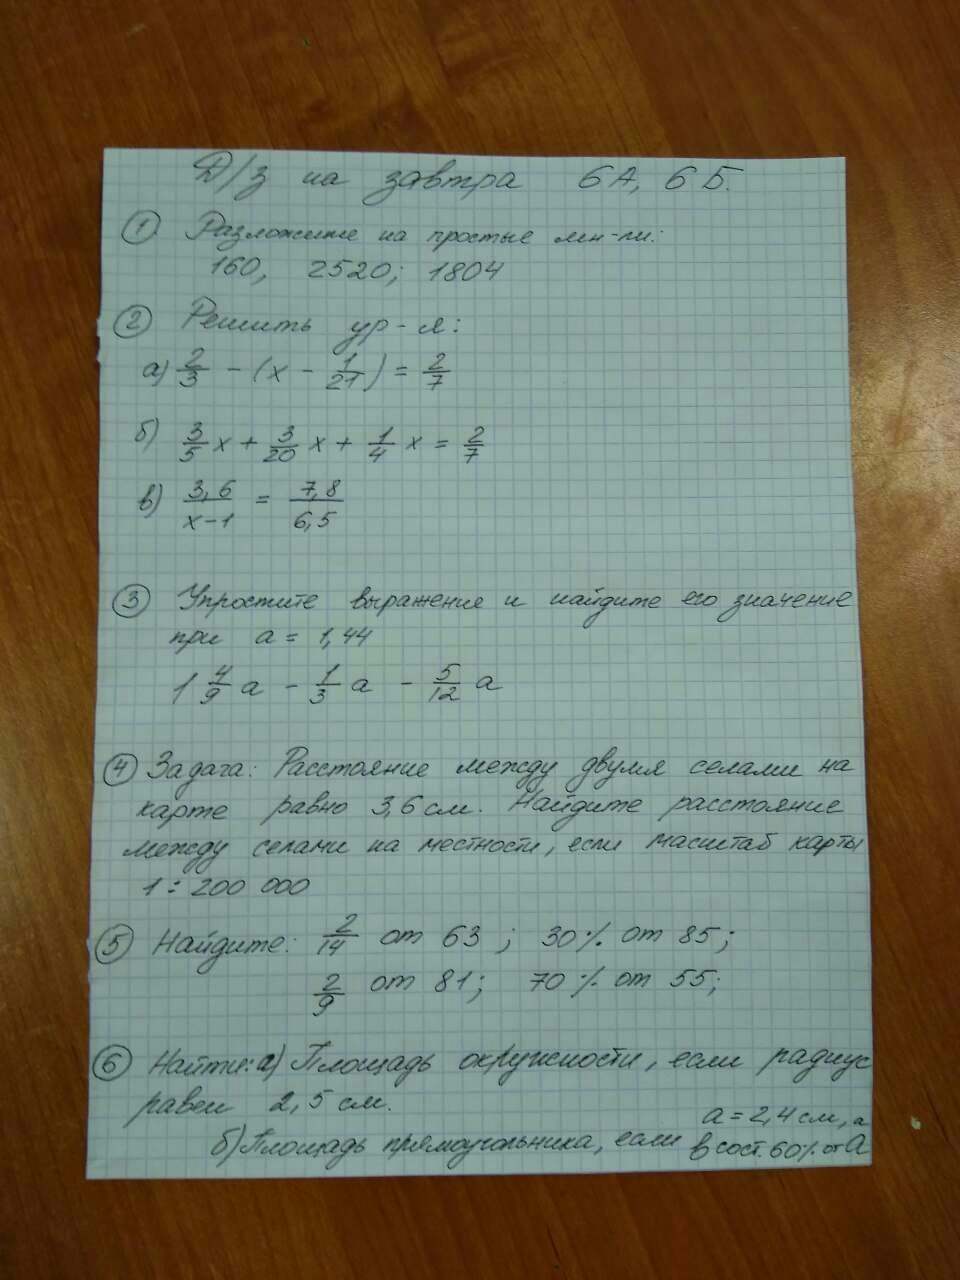 Д/з на завтра 6А, 6Б.
① Разложение на простые мн-ли:
160, 2520; 1804
② Решить ур-я:
а) 2/3 - (x - 1/21) = 2/7
б) 3/5 x + 3/20 x + 1/4 x = 2/7
в) 3,6/x-1 = 7,8/6,5
③ Упростите выражение и найдите его значение
при a = 1,44
1 4/9 a - 1/3 a - 5/12 a
④ Задача: Расстояние между двумя селами на
карте равно 3,6 см. Найдите расстояние
между селами на местности, если масштаб карты
1 : 200 000
⑤ Найдите: 2/14 от 63 ; 30% от 85;
2/9 от 81; 70% от 55;
⑥ Найти: а) Площадь окружности, если радиус
равен 2,5 см.
б) Площадь прямоугольника, если a = 2,4 см, а
в сост. 60% от а